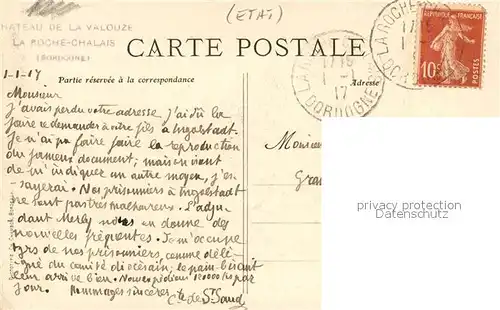 (ETAT)
CHATEAU DE LA VALOUZE
LA ROCHE-CHALAIS
(DORDOGNE)
CARTE POSTALE
RÉPUBLIQUE FRANÇAISE
10c
LA ROCHE
DORDOGNE
17
1-1-17
Partie réservée à la correspondance
Adresse
Monsieur
j'avais perdu votre adresse j'ai dû la
faire redemander à votre fils à Ingolstadt.
Je n'ai pu faire faire la reproduction
du fameux document; mais on vient
de m'indiquer un autre moyen, j'es-
sayerai. Nos prisonniers à Ingolstadt
ne sont pas très malheureux. L'adju-
dant Merly nous en donne des
nouvelles fréquentes. Je m'occupe
tjrs de nos prisonniers, comme délé-
gué du comité diocésain; le pain biscuit
leur arrive bien. Nous expédions 12000 ks par
jour. Hommages sincères Cte de St Saud
Monsieur
Gra
protected by copyright